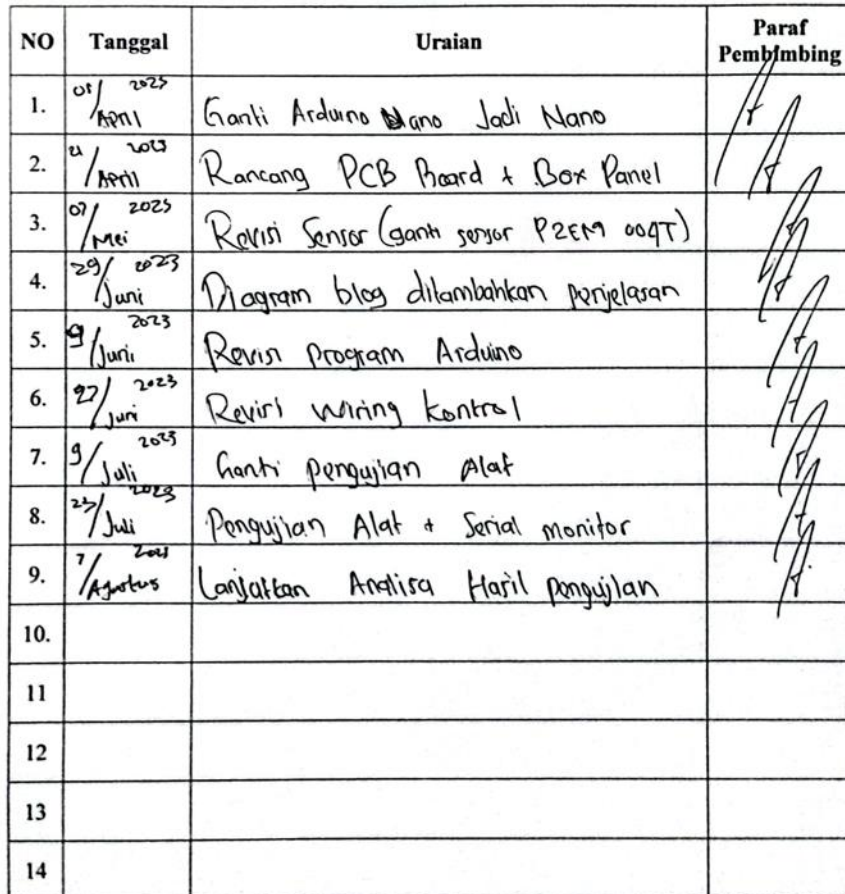 NO Tanggal Uraian Paraf Pembimbing
1. 2023 April Ganti Arduino Nano Jadi Nano
2. 21/April 2023 Rancang PCB Board + Box Panel
3. 07/Mei 2023 Revisi Sensor (ganti sensor PZEM 004T)
4. 29/Juni 2023 Diagram blog ditambahkan penjelasan
5. 9/Juni 2023 Revisi program Arduino
6. 27/Juni 2023 Revisi wiring kontrol
7. 9/Juli 2023 Ganti pengujian Alat
8. 23/Juli 2023 Pengujian Alat + Serial monitor
9. 7/Agustus 2023 Lanjutkan Analisa Hasil pengujian
10.
11
12
13
14